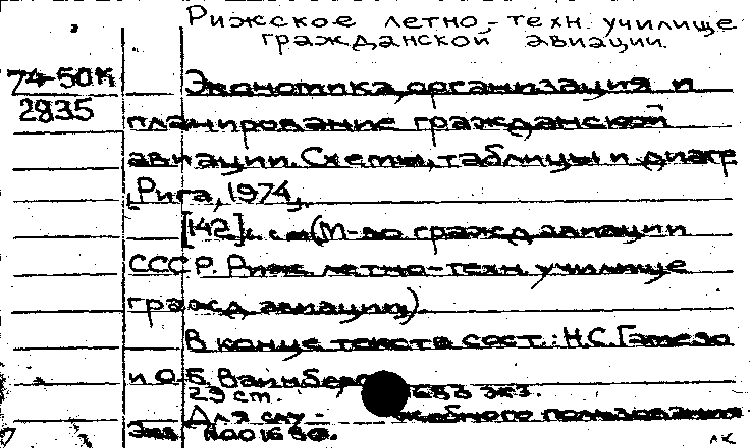 Рижское летно-техн. училище
гражданской авиации.
74-50К
2835
Экономика, организация и
планирование гражданской
авиации. Схемы, таблицы и диагр.
[Рига, 1974].
[142] с. (М-во гражд авиации
СССР. Рижс летно-техн. училище
гражд авиации)
В конце текста сост.: Н.С.
и О.Б. Вайнберг экз.
29 см.
Для слу- жебного пользования
Экз.